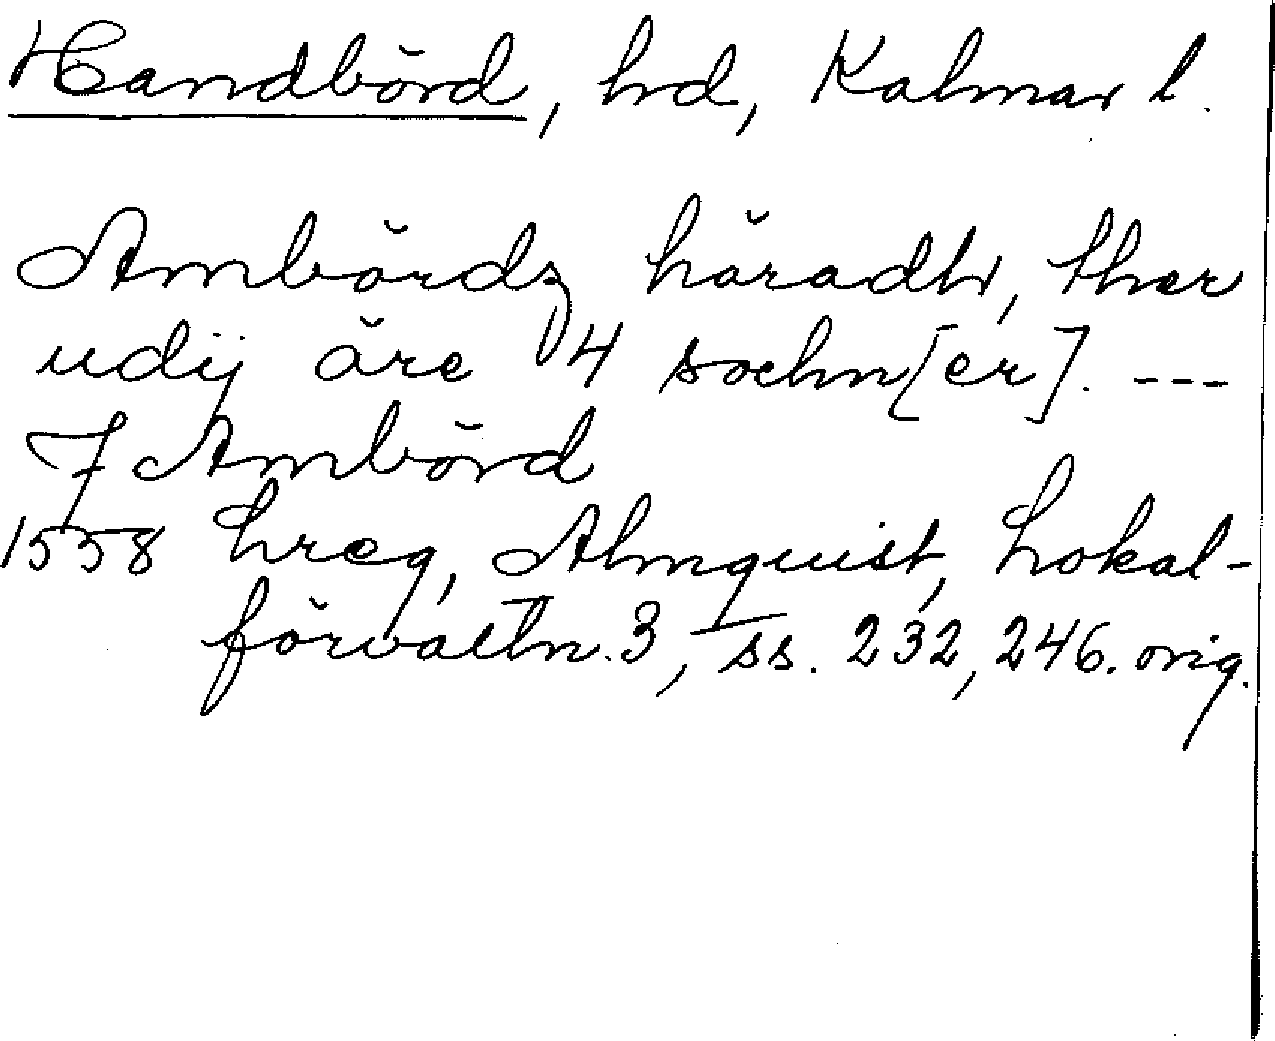 Handbörd, hd, Kalmar l.
Ambördz häradh, ther
udij äre 4 sochn[er]. ---
J Ambörd
1558 hreg, Almquist, Lokal-
förvaltn. 3, ss. 232, 246. orig.